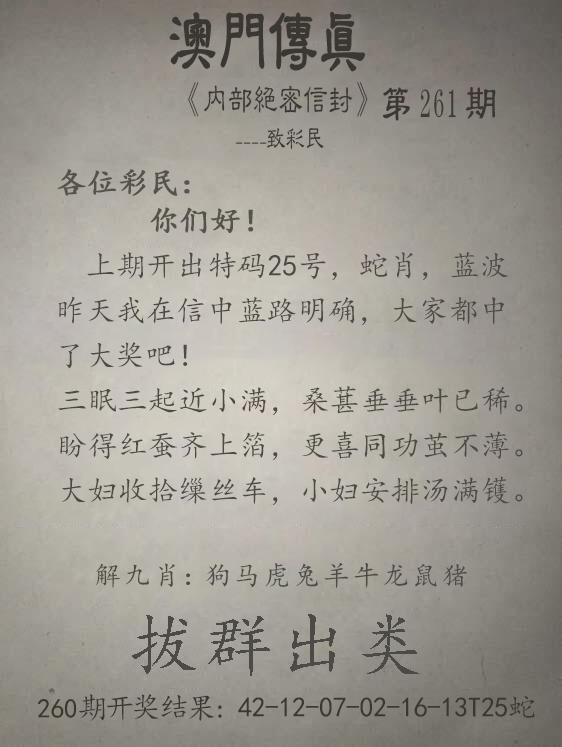 澳門傳真
《内部絕密信封》第261期
----致彩民
各位彩民：
你们好！
上期开出特码25号，蛇肖，蓝波
昨天我在信中蓝路明确，大家都中
了大奖吧！
三眠三起近小满，桑葚垂垂叶已稀。
盼得红蚕齐上箔，更喜同功茧不薄。
大妇收拾缫丝车，小妇安排汤满镬。
解九肖：狗马虎兔羊牛龙鼠猪
拔群出类
260期开奖结果：42-12-07-02-16-13T25蛇